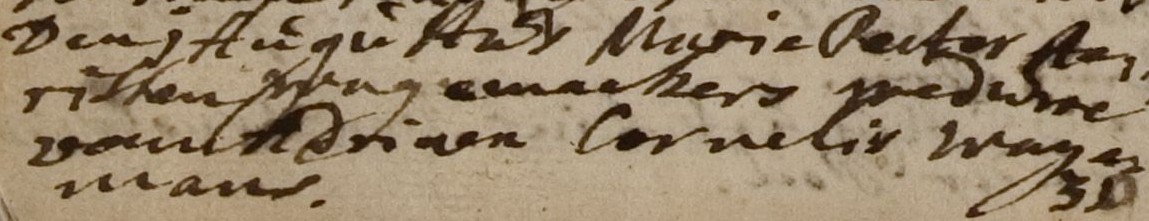 Den j Augustus Marie Peeter Hen,
ricken wagemackers weduwe
van Adriaen Cornelis Wage
mans. 30